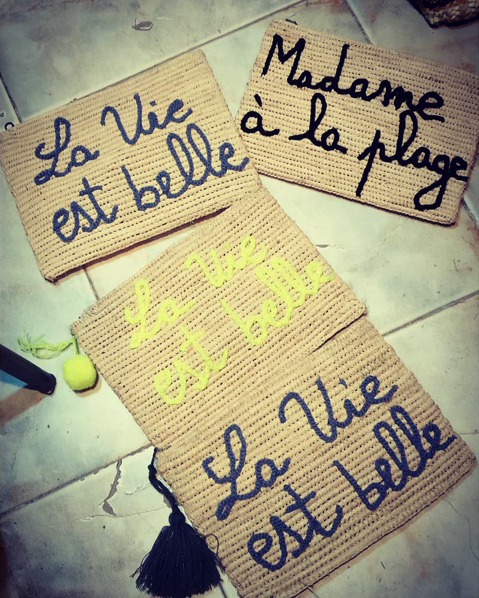 La Vie
est belle
Madame
à la plage
La Vie
est belle
La Vie
est belle